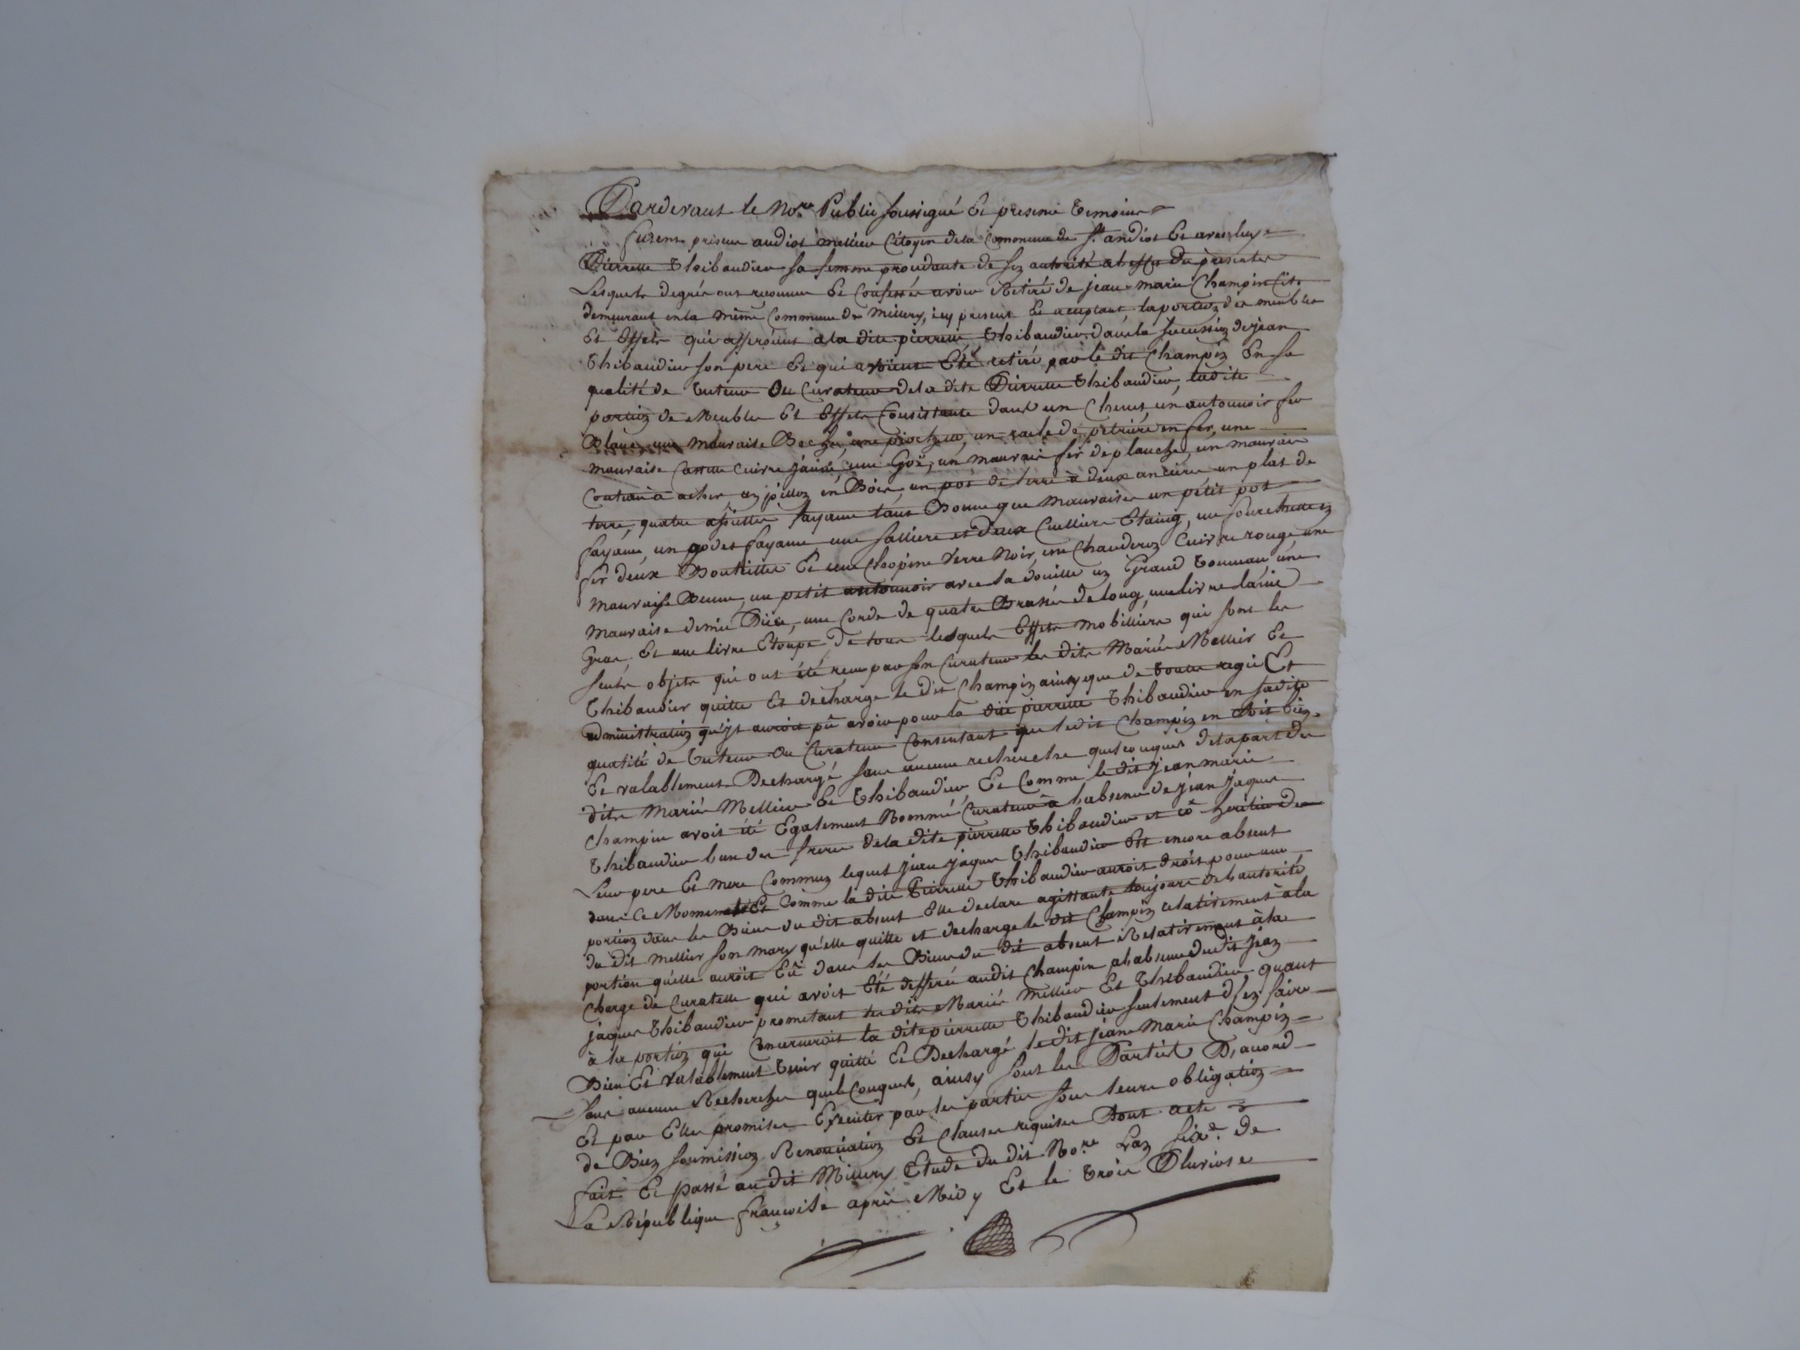 Pardevant le No.re Public soussigné Et presens temoins
furent presens andiol mellier Citoyen dela Commune de St. andiol Et avec luy
Pierrette thibaudier sa femme procedante de son autorité a l'effet du présentes
Lesquels degrés ont reconnu Et Confessés avoir Retiré de jean marie Champin Cite
demeurant en la même Commune de Millery, icy present Et acceptant la portion des meubles
Et Effets qui afferoient a la dite pierrette thibaudier dans la succession de jean
thibaudier son pere Et qui avoient Eté retiré par le dit Champin En sa
qualité de tuteur ou Curateur de la dite Pierrette thibaudier, la dite
portion de Meubles Et Effets Consistante dans un un antonnoir fer
Blanc, une mauvaise Beche, une pioche, un racle de petriere en fer, une
mauvaise Casse Cuivre jaune, une Goë, un mauvais fer de planche, un mauvais
Couteau à acher, un pillon en Bois, un pot de terre à deux ances un plat de
terre, quatre assiettes fayance tant Bonne que Mauvaises un petit pot
fayance, un godet fayance une salliere et deux Cuilliere Etaing, une fourchette en
fer deux Bouteilles Et une Chopine Verre Noir, un Chauderon Cuivre rouge, une
Mauvaise Benne, un petit antonnoir avec sa douille un Grand tonneau une
Mauvaise demie Piece, une Corde de quatre Brasses de long, une livre laine
Grasse, Et une livre Etoupe De tous lesquels Effets mobilliers qui sont les
seuls objets qui ont été reçu par son Curateur les dits Mariés Mellier Et
thibaudier quitte Et décharge le dit Champin ainsy que de toute regie Et
administration qu'il auroit pû avoir pour la dite pierrette thibaudier en sa dite
qualité de tuteur ou Curateur Consentant que le dit Champin en soit bien
Et valablement Dechargé sans aucune recherche quelconques de la part des
dits Mariés Mellier Et thibaudier, Et Comme le dit jean marie
Champin avoit été Egalement Nommé Curateur à l'absence de jean jaques
thibaudier l'un des freres de la dite pierrette thibaudier et co heritier de
leur pere Et mere Commun lequel jean jaques thibaudier est encore absent
dans ce Moment Et Comme la dite Pierrette thibaudier auroit droit pour une
portion dans les Biens du dit absent Elle declare agissante toujours de l'autorité
du dit mellier son mary qu'elle quitte et decharge le dit Champin relativement à la
portion qu'elle auroit Eû dans les Biens du dit absent Relativement à la
Charge de Curatelle qui avoit Eté defferé audit Champin a l'absence du dit jean
jaques thibaudier prometant les dits Mariés Mellier Et thibaudier, quant
à la portion qui Concerneroit la dite pierrette thibaudier seulement d'en faire
Bien Et valablement tenir quitte Et Dechargé le dit jean Marie Champin
sans aucune Recherche quelConques, ainsy sont les Parties D'acord
Et par Elles promises Executer par les parties sous leurs obligation
de Biens soumission Renonciation Et Clauses requises Dont acte
fait Et passé au dit Millery Etude du dit No.re L'an six.e de
La République françoise après Midy Et le trois Pluviose